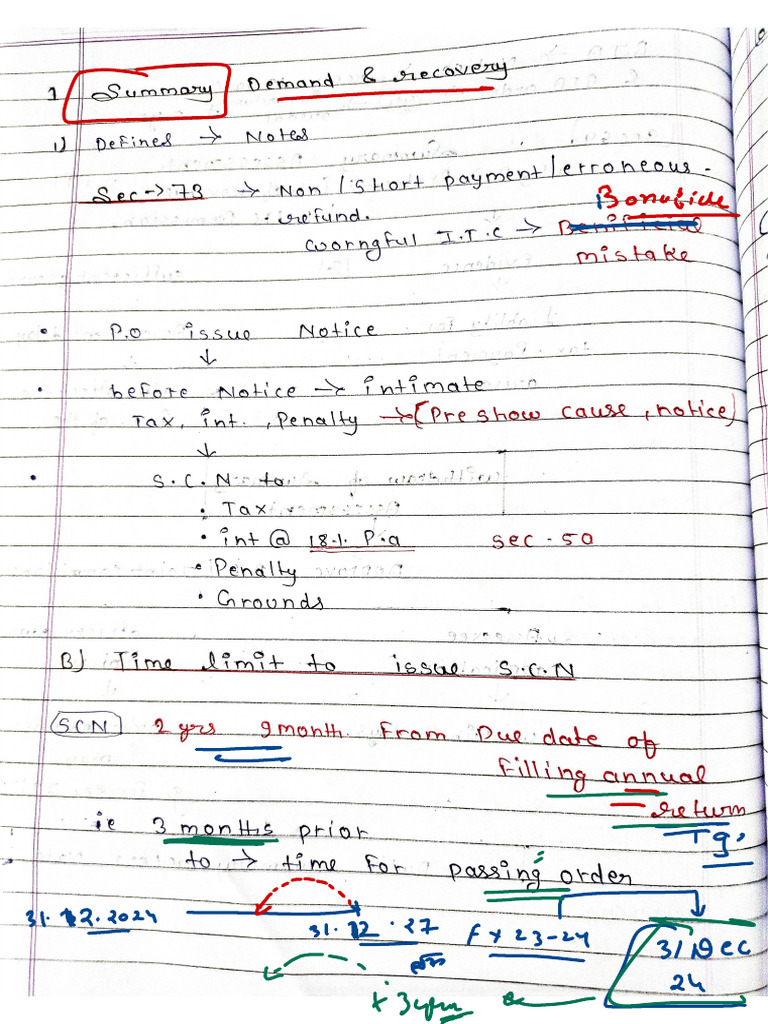 1 Summary Demand & recovery
1) Defines → Notes
Sec → 73 → Non / Short payment / erroneous.
refund.
Worngful I.T.C → Bonufide
mistake
• P.O issue Notice
↓
• before Notice → intimate
Tax, int., Penalty → (Pre show cause, notice)
↓
• S.C.N to
• Tax
• int @ 18.1. P.a sec - 50
• Penalty
• Grounds
B) Time limit to issue S.C.N
SCN 2 yrs 9month From Due date of
filling annual
return
ie 3 months prior
to → time for passing order
31.12.2024 31.12.27 FY 23-24 31 Dec
24